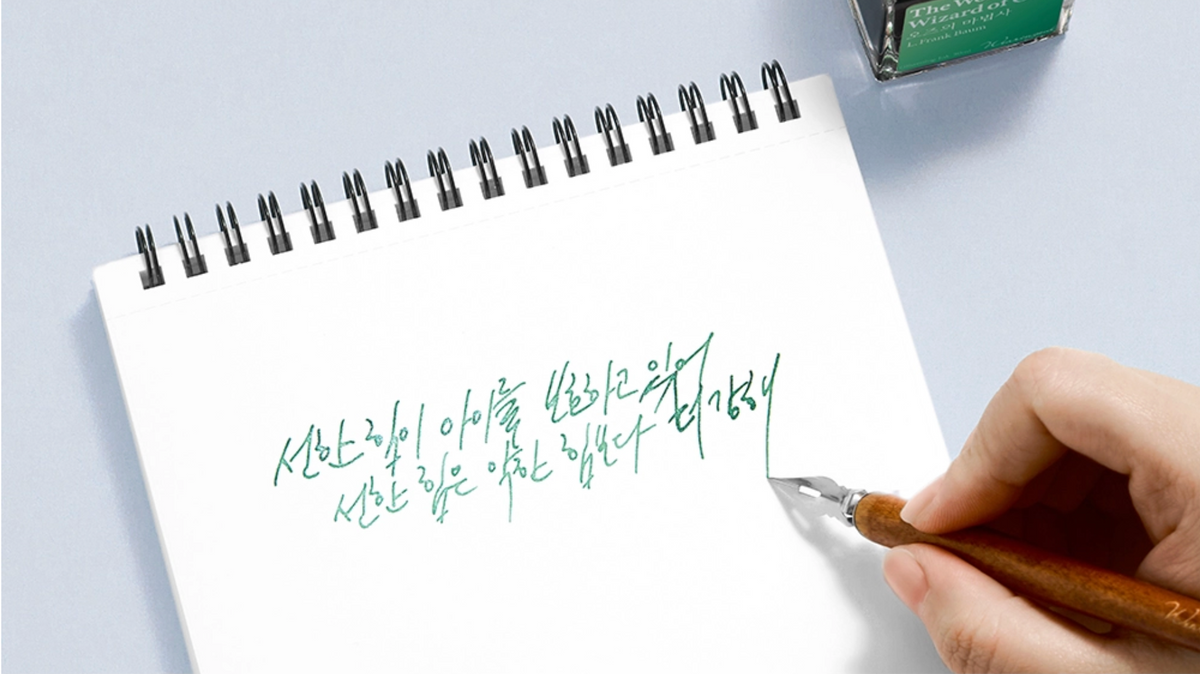 The Wo
Wizard of O
오즈의 마법사
L. Frank Baum
선한 힘이 아이를 보호하고 있어
선한 힘은 악한 힘보다 더 강해